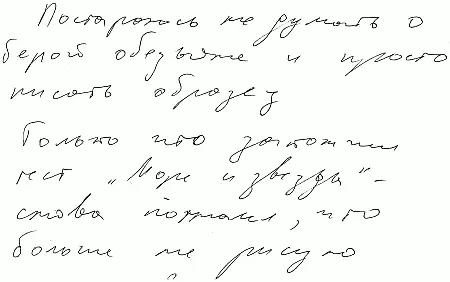 Постараюсь не думать о
белой обезьяне и просто
писать образец
Только что закончил
тест „Море и звезды“ -
снова понял, что
больше не рисую